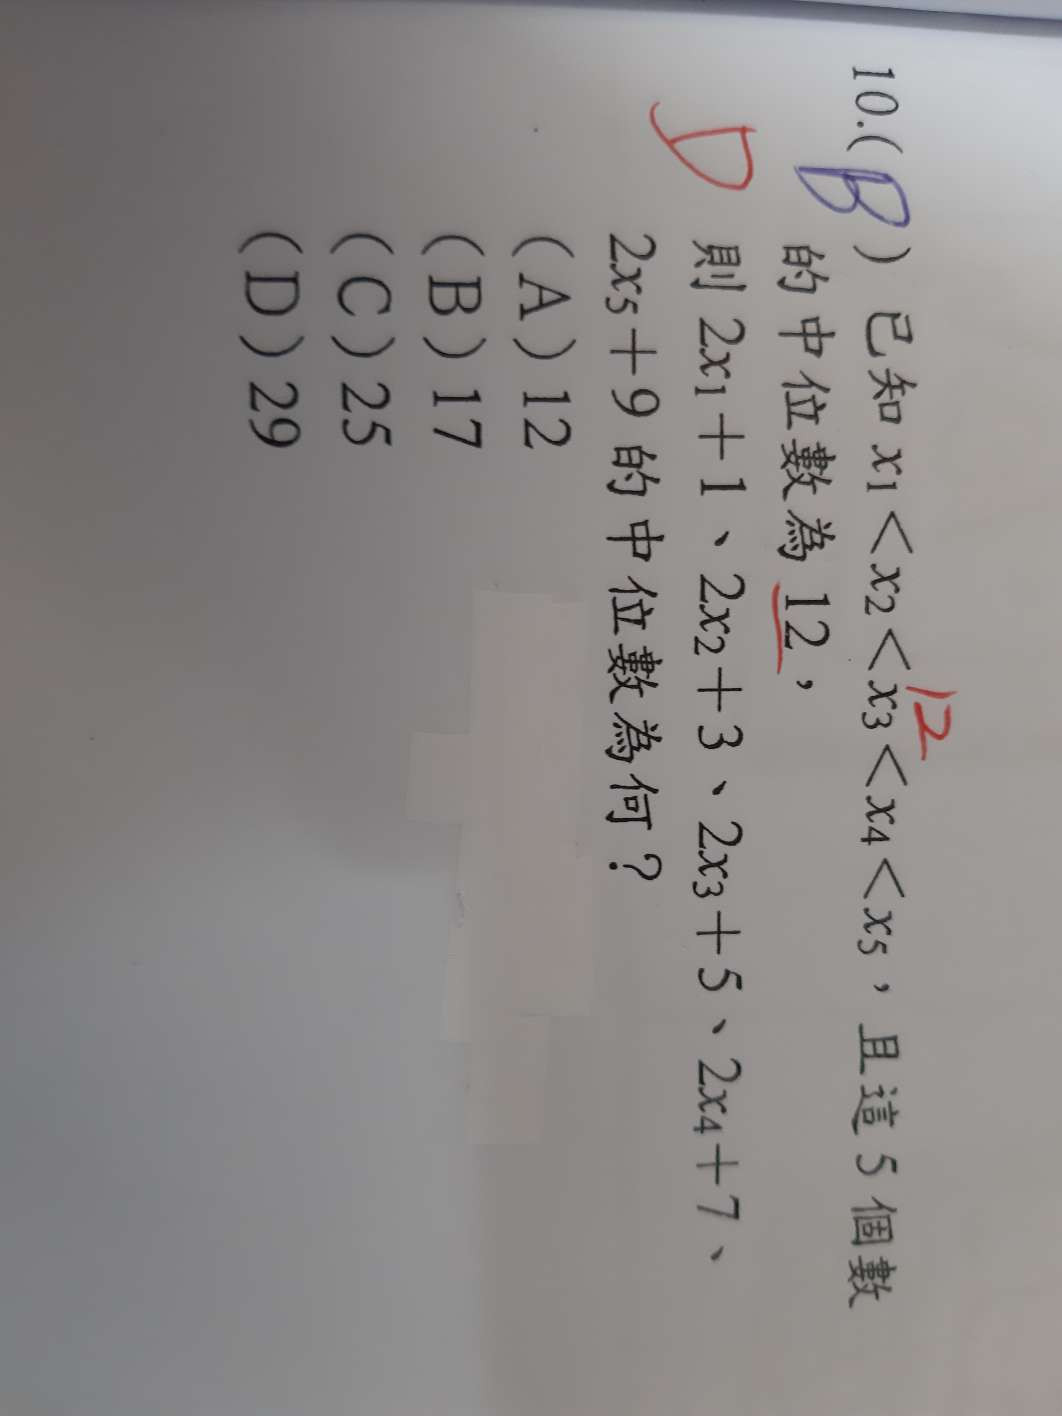 10.( B ) 已知 x₁＜x₂＜x₃＜x₄＜x₅，且這 5 個數
12
的中位數為 12，
D
則 2x₁＋1、2x₂＋3、2x₃＋5、2x₄＋7、
2x₅＋9 的中位數為何？
（A）12
（B）17
（C）25
（D）29